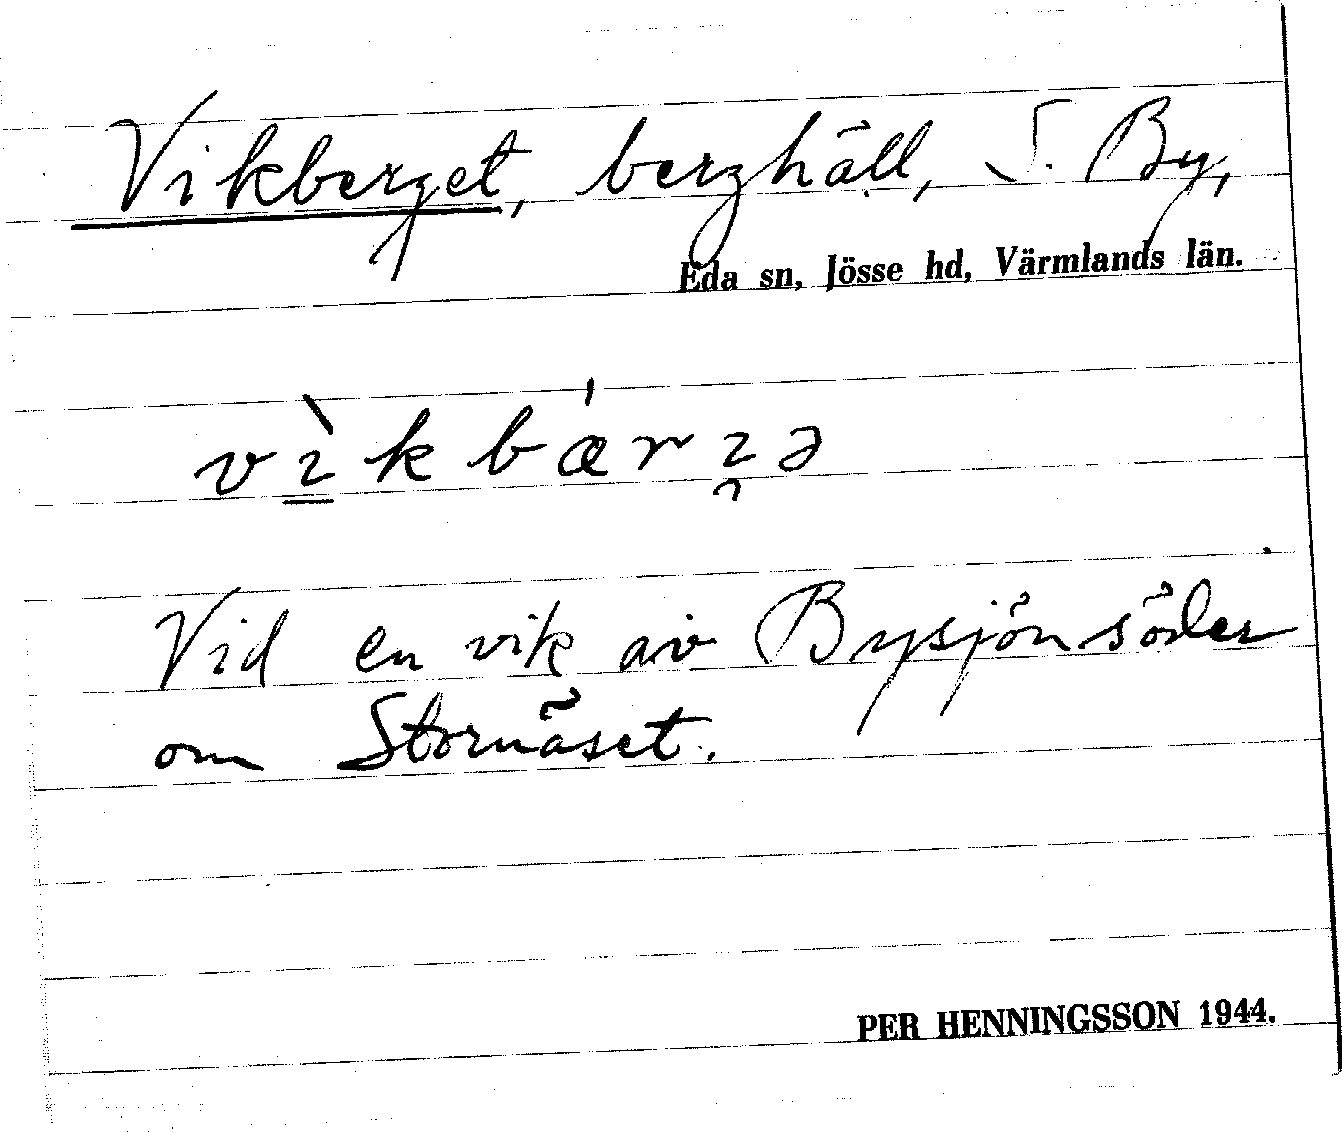 Vikberget, berghäll, S. By,
Eda sn, Jösse hd, Värmlands län.
vìkbárɩ̯ə
Vid en vik av Bysjön söder
om Stornäset.
PER HENNINGSSON 1944.